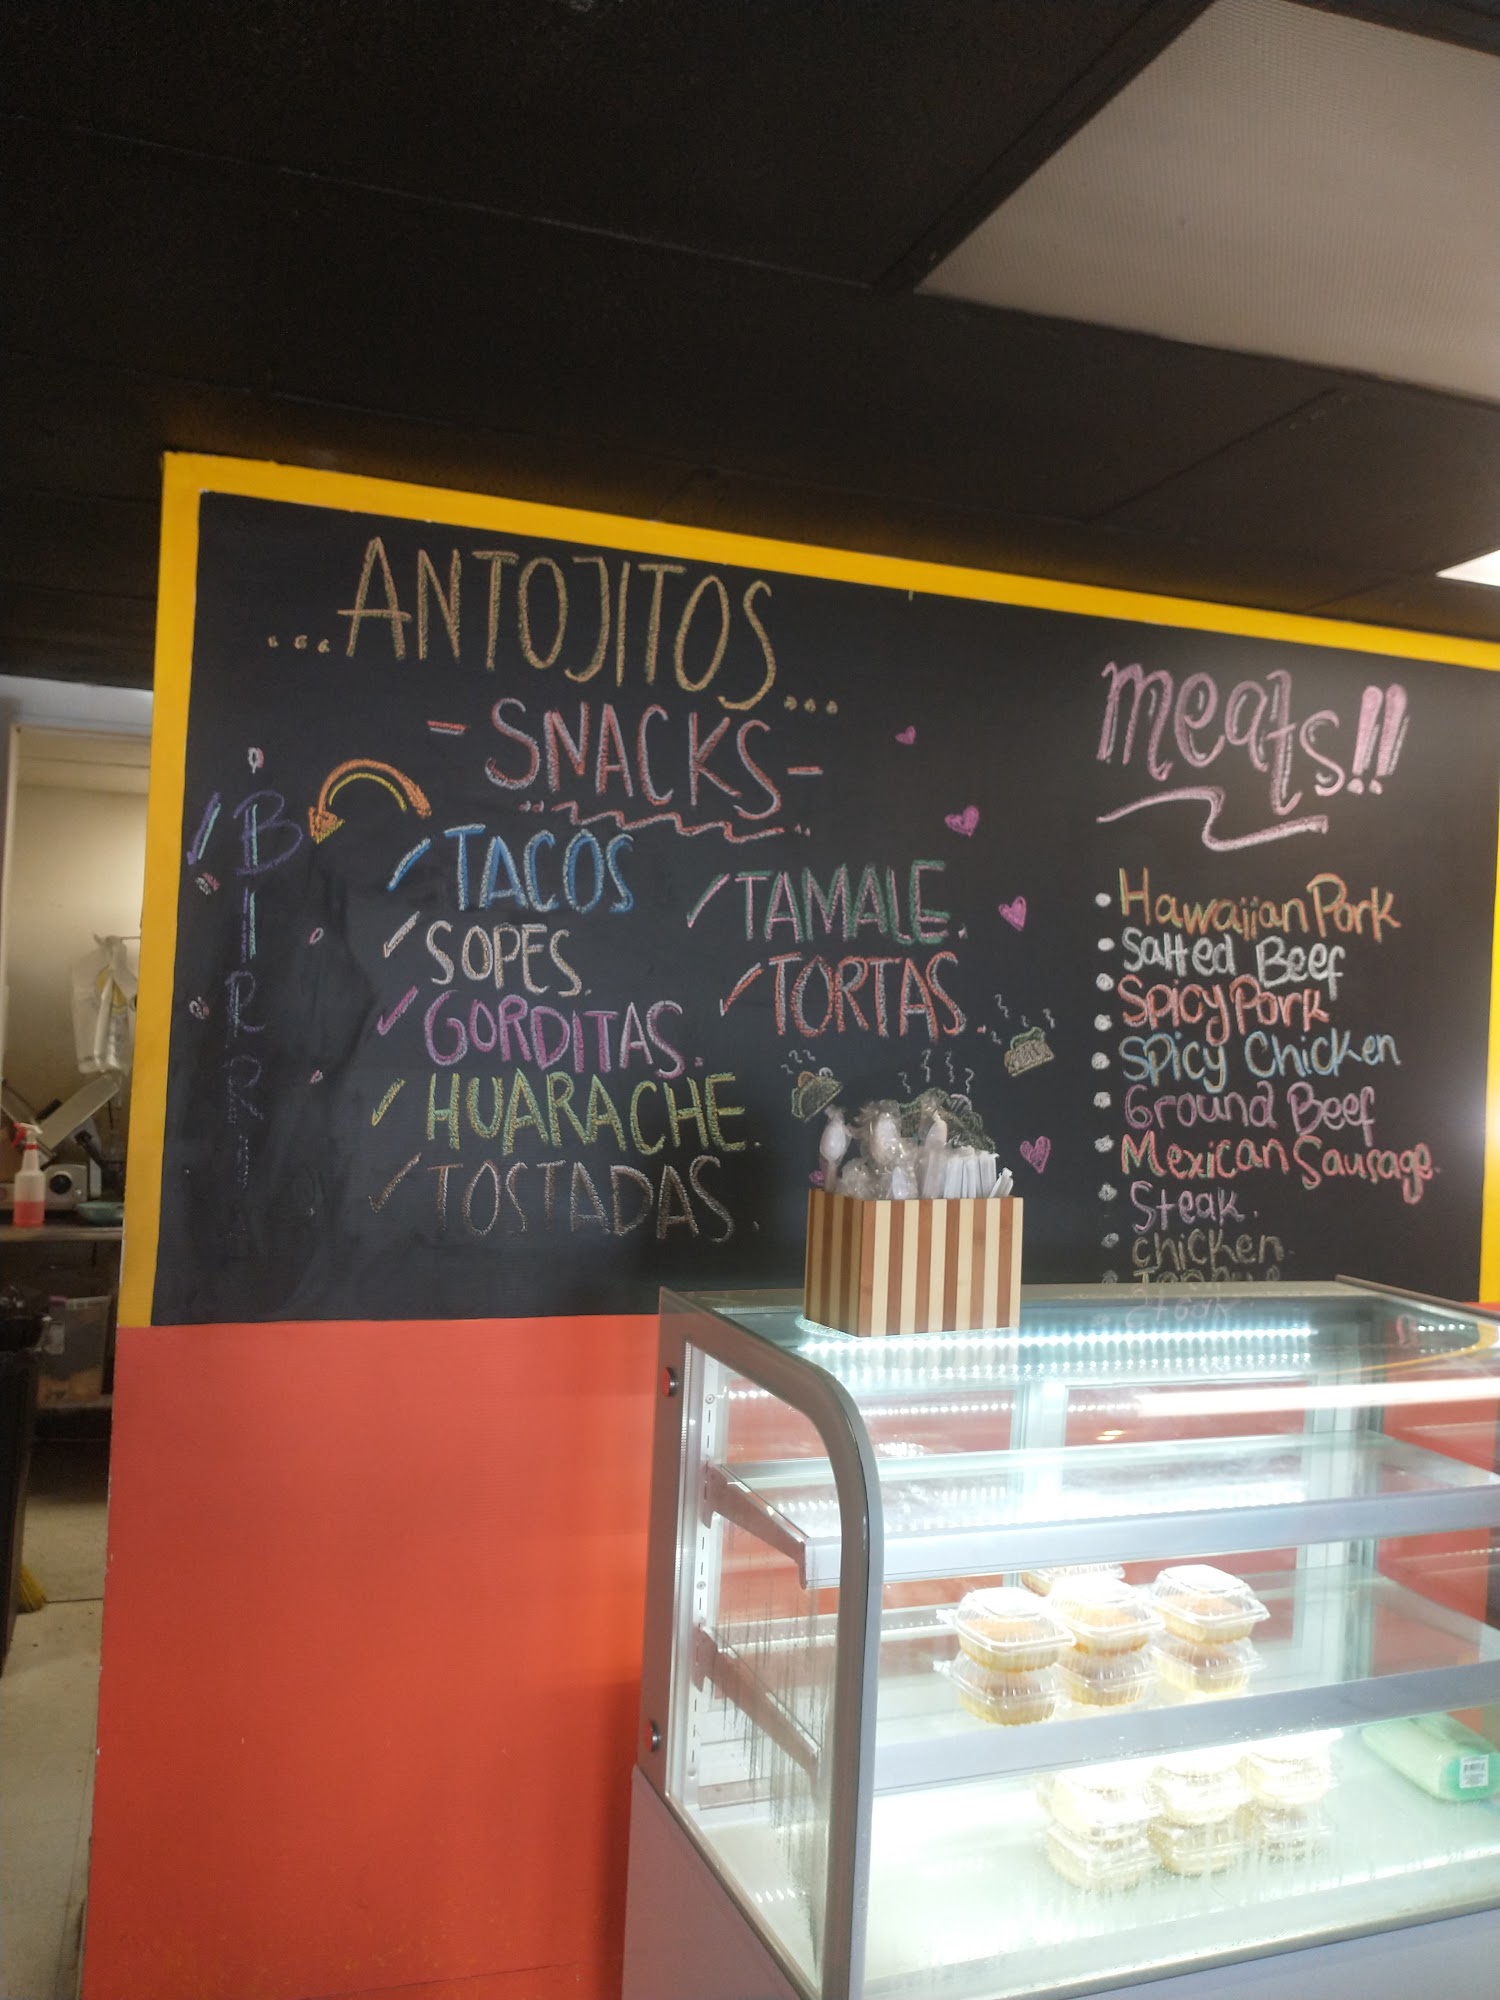 ...ANTOJITOS...
- SNACKS -
BIRRIA
✓ TACOS
✓ SOPES.
✓ GORDITAS.
✓ HUARACHE.
✓ TOSTADAS.
✓ TAMALE.
✓ TORTAS.
meats!!
• Hawaiian Pork
• Salted Beef
• Spicy Pork
• Spicy Chicken
• Ground Beef
• Mexican Sausage.
• Steak.
• chicken.